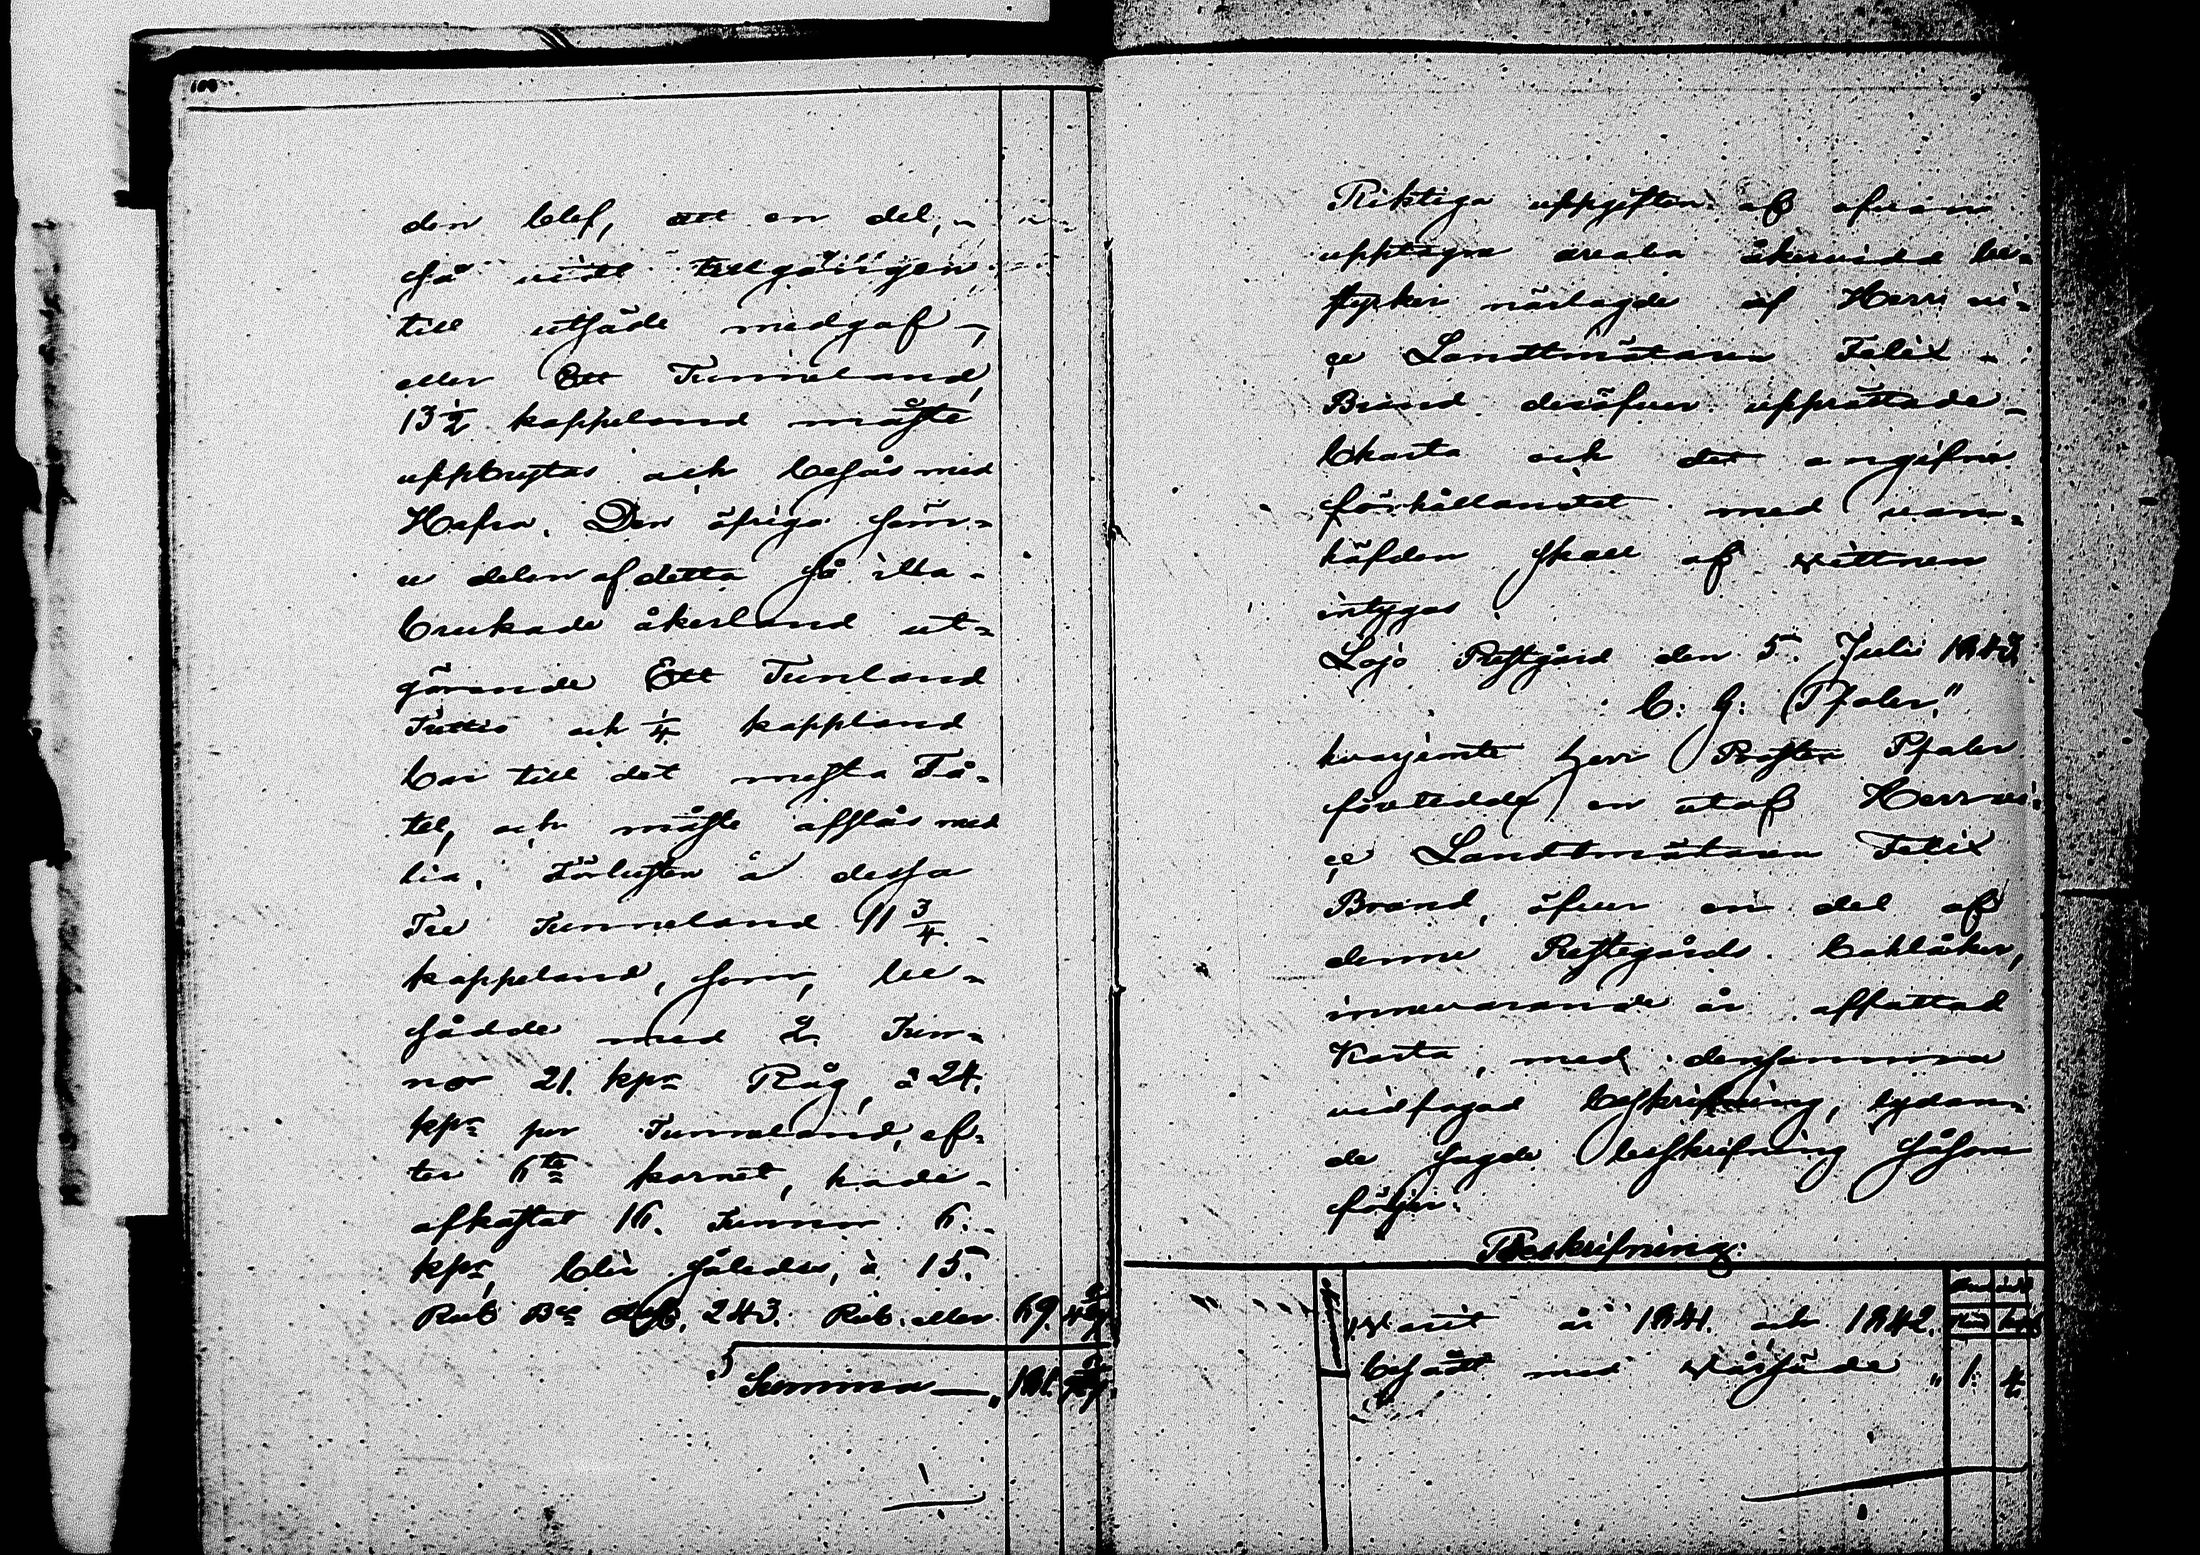 den blef, att en del, -
så vidt tillgången
till utsäde medgaf -,
eller Ett Tunneland,
13½ kappeland måste
uppbrytas och besås med
Hafra. Den öfriga säm-
re delen af detta så illa-
brukade åkerland ut-
görande Ett Tunland
Tretton och ¼ kappland
bar till det mesta Tå-
tel, och måste afslås med
lia. Förlusten å dessa
Tre Tunneland 11 ¾
kappeland, som, be-
sådde med 2 Tun-
nor 21. kpr Råg, à 24.
kpr per Tunneland, ef-
ter 6te kornet, hade
afkastat 16. Tunnor 6.
kpr, blir således, à 15.
Rub Bco 243. Rub. eller 69.
Summa
Riktiga uppgiften af ofvan
upptagne areala åkervidd be-
styrker närlagde af Herr vi-
çe Landtmätaren Felix
Brand deröfver upprättade
Charta och det angifne
förhållandet med van-
häfden skall af vittnen
intygas
Lojo Prestgård den 5. Julii 1843
C: G: Pfaler."
hvarjemte Herr Prosten Pfaler
företedde en utaf Herr vi-
çe Landtmätaren Felix
Brand, öfver en del af
denne Prestegårds Bohlåker,
innevarande år affattad
Karta, med densamma
vidfogad beskrifning, lydan-
de sagde beskrifning såsom
följer:
Beskrifning:
Warit år 1841. och 1842.
besått med vårsäde " 1. 4.